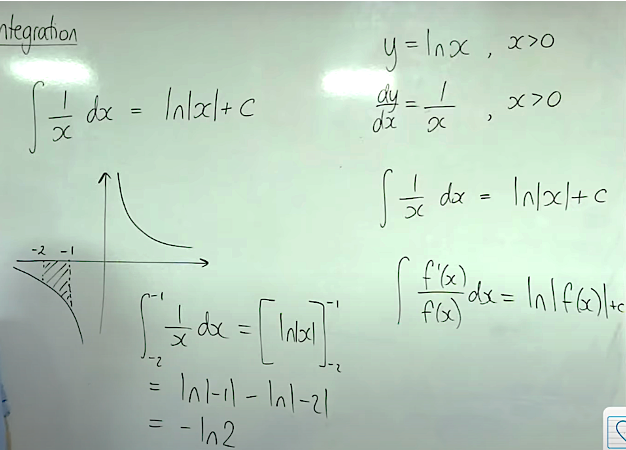 ntegration
∫ 1/x dx = ln|x| + c
-2 -1
∫_{-2}^{-1} 1/x dx = [ln|x|]_{-2}^{-1}
= ln|-1| - ln|-2|
= -ln2
y = lnx , x>0
dy/dx = 1/x , x>0
∫ 1/x dx = ln|x| + c
∫ f'(x)/f(x) dx = ln|f(x)| + c